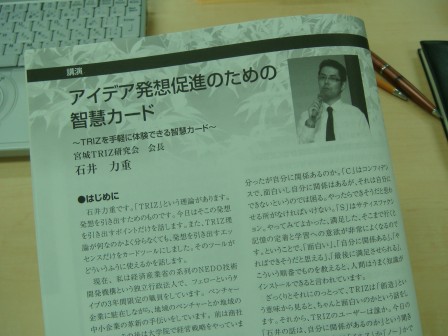 講演
アイデア発想促進のための
智慧カード
～TRIZを手軽に体験できる智慧カード～
宮城TRIZ研究会 会長
石井 力重
●はじめに
石井力重です。「TRIZ」という理論があります。
発想を引き出すためのものです。今日はその発想
を引き出すポイントだけを話します。また、TRIZ理
論が何なのかよく分らなくても、発想を引き出すエッ
センスだけをカードツールにしました。そのツールが
どういうふうに使えるかを話します。
現在、私は経済産業省の系列のNEDO技術
開発機構という独立行政法人で、フェローというタ
イプの3年間限定の職員をしています。ベンチャー
企業に駐在しながら、地域のベンチャーとか地域の
中小企業の革新の手伝いをしています。前は商社
大学院で経営戦略をやっていま
分ったが自分に関係あるのか。「C」はコンフィデン
スで、面白いし自分に関係はあるが、それは自分に
できないというのでは困る。やったらできそうだと思わ
せる所がなければいけない。「S」はサティスファク
ション。やってみてよかった、満足した。そこまで行くと
記憶の定着と学習への意欲が非常によくなるので
す。ということで、「面白い」、「自分に関係ある」、「や
ればできそうだと思える」、「最後に満足させられる」、
こういう順番でものを教えると、人間はうまく知識が
インストールできると言われています。
ざっくりとそれにのっとって、TRIZは「創造」とい
う意味から見ると、ちゃんと面白いのかという話をし
ます。それから、TRIZのユーザーは誰か。今日の
「石井の話は、自分に関係あるのか